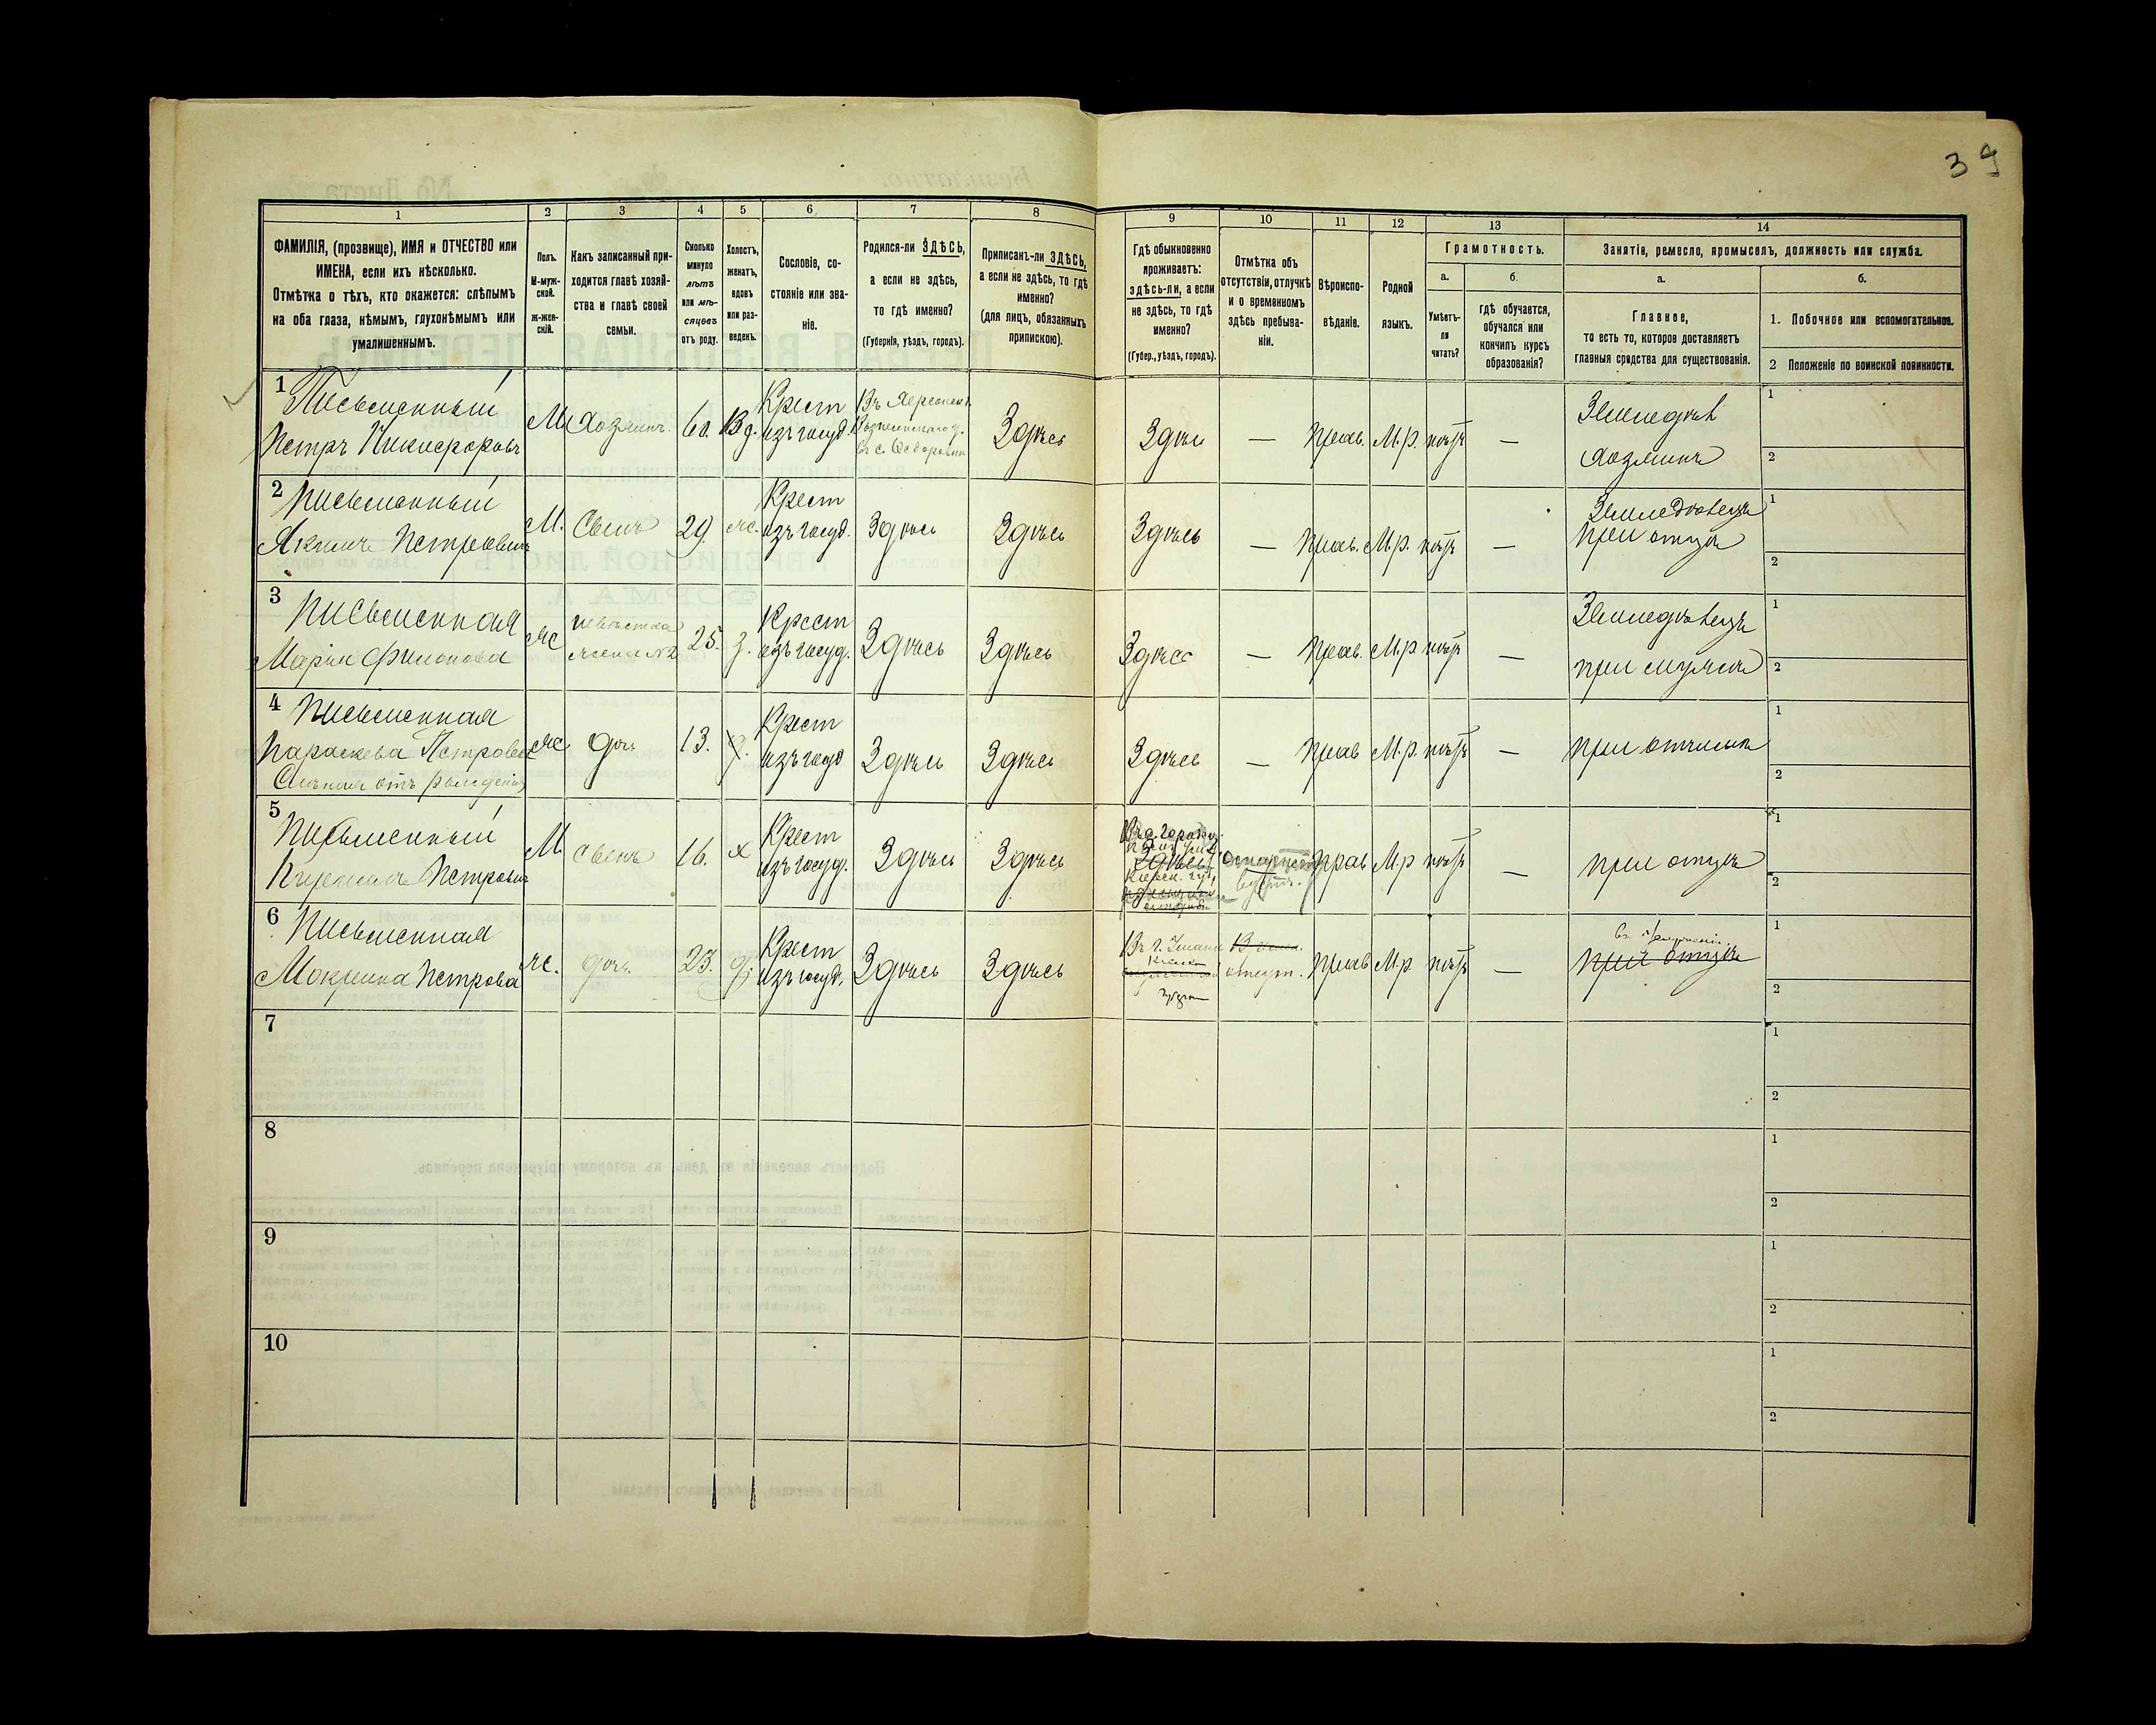 39
1 2 3 4 5 6 7 8 9 10 11 12 13 14
ФАМИЛІЯ, (прозвище), ИМЯ и ОТЧЕСТВО или
ИМЕНА, если ихъ нѣсколько.
Отмѣтка о тѣхъ, кто окажется: слѣпымъ
на оба глаза, нѣмымъ, глухонѣмымъ или
умалишеннымъ.
Полъ.
М-муж-
ской.
ж-жен-
скій.
Какъ записанный при-
ходится главѣ хозяй-
ства и главѣ своей
семьи.
Сколько
минуло
лѣтъ
или мѣ-
сяцевъ
отъ роду.
Холостъ,
женатъ,
вдовъ
или раз-
веденъ.
Сословіе, со-
стояніе или зва-
ніе.
Родился-ли ЗДѢСЬ,
а если не здѣсь,
то гдѣ именно?
(Губернія, уѣздъ, городъ).
Приписанъ-ли ЗДѢСЬ,
а если не здѣсь, то гдѣ
именно?
(для лицъ, обязанныхъ
припискою).
Гдѣ обыкновенно
проживаетъ:
здѣсь-ли, а если
не здѣсь, то гдѣ
именно?
(Губер., уѣздъ, городъ).
Отмѣтка объ
отсутствіи, отлучкѣ
и о временномъ
здѣсь пребыва-
ніи.
Вѣроиспо-
вѣданіе.
Родной
языкъ.
Грамотность.
а.
Умѣетъ-
ли
читать?
б.
гдѣ обучается,
обучался или
кончилъ курсъ
образованія?
Занятія, ремесло, промыселъ, должность или служба.
а.
Главное,
то есть то, которое доставляетъ
главныя средства для существованія.
б.
1. Побочное или вспомогательное.
2 Положеніе по воинской повинности.
1 Письменный
Петръ Никифоровъ
М. Хозяинъ. 60. Вд.
Крест
изъ госуд.
Здѣсь Здѣсь — прав. М.р. нѣтъ —
Земледѣл
хозяинъ
1
2
2 Письменный
Якимъ Петровичъ
М. Сынъ 29. ж.
Крест
изъ госуд.
Здѣсь Здѣсь Здѣсь — прав. М.р. нѣтъ —
Земледѣлецъ
при отцѣ
1
2
3 Письменная
Марія Филипова
ж
невѣстка
жена №2
25. з.
Крест
изъ госуд.
Здѣсь Здѣсь Здѣсь — прав. М.р. нѣтъ —
Земледѣлецъ
при мужѣ
1
2
4 Письменная
Параскева Петрова
Слѣпая отъ рожденія
ж дочь 13. д.
Крест
изъ госуд
Здѣсь Здѣсь Здѣсь — прав М.р. нѣтъ —
1
2
5 Письменный
Петровичъ
М. сынъ 16. х
Крест
изъ госуд.
Здѣсь Здѣсь
Здѣсь
прав М.р нѣтъ —
при отцѣ
1
2
6 Письменная
Мокрина Петрова
ж. дочь. 23. д.
Крест
изъ госуд.
Здѣсь Здѣсь
Въ г. Умани
прав М.р. нѣтъ —
при отцѣ
1
2
7
1
2
8
1
2
9
1
2
10
1
2